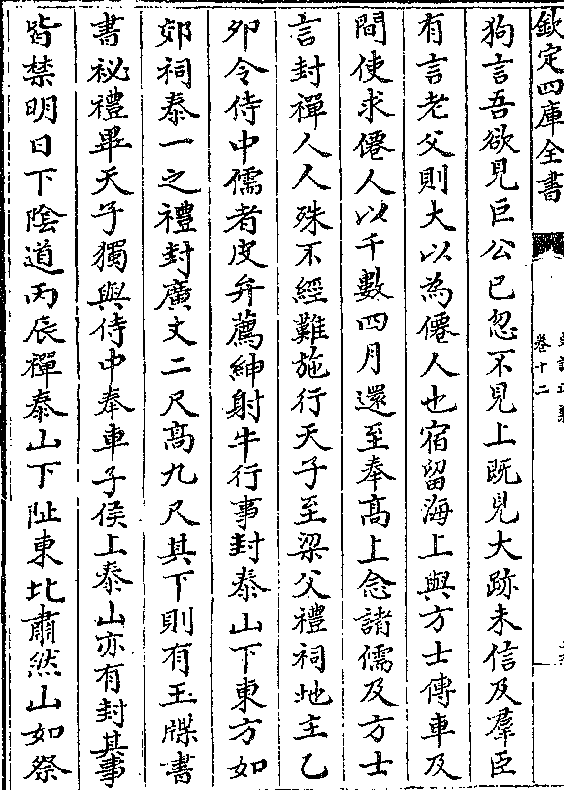 欽定四庫全書
卷十二
狗言吾欲見巨公已忽不見上既見大跡未信及羣臣
有言老父則大以為僊人也宿留海上與方士傳車及
間使求僊人以千數四月還至奉髙上念諸儒及方士
言封禪人人殊不經難施行天子至梁父禮祠地主乙
夘令侍中儒者皮弁薦紳射牛行事封泰山下東方如
郊祠泰一之禮封廣丈二尺髙九尺其下則有玉牒書
書祕禮畢天子獨與侍中奉車子侯上泰山亦有封其事
皆禁明日下隂道丙辰禪泰山下阯東北肅然山如祭